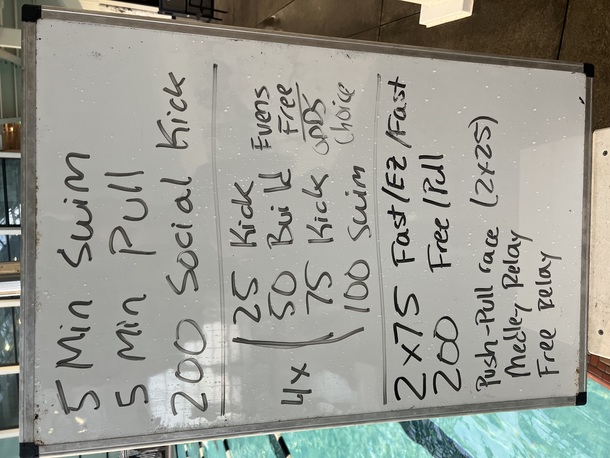 5 Min Swim
5 Min Pull
200 Social Kick
4x
25 Kick
50 Build
75 Kick
100 Swim
Evens
Free
ODDS
Choice
2x75 Fast/EZ/Fast
200 Free/Pull
Push-Pull race (2x25)
Medley Relay
Free relay